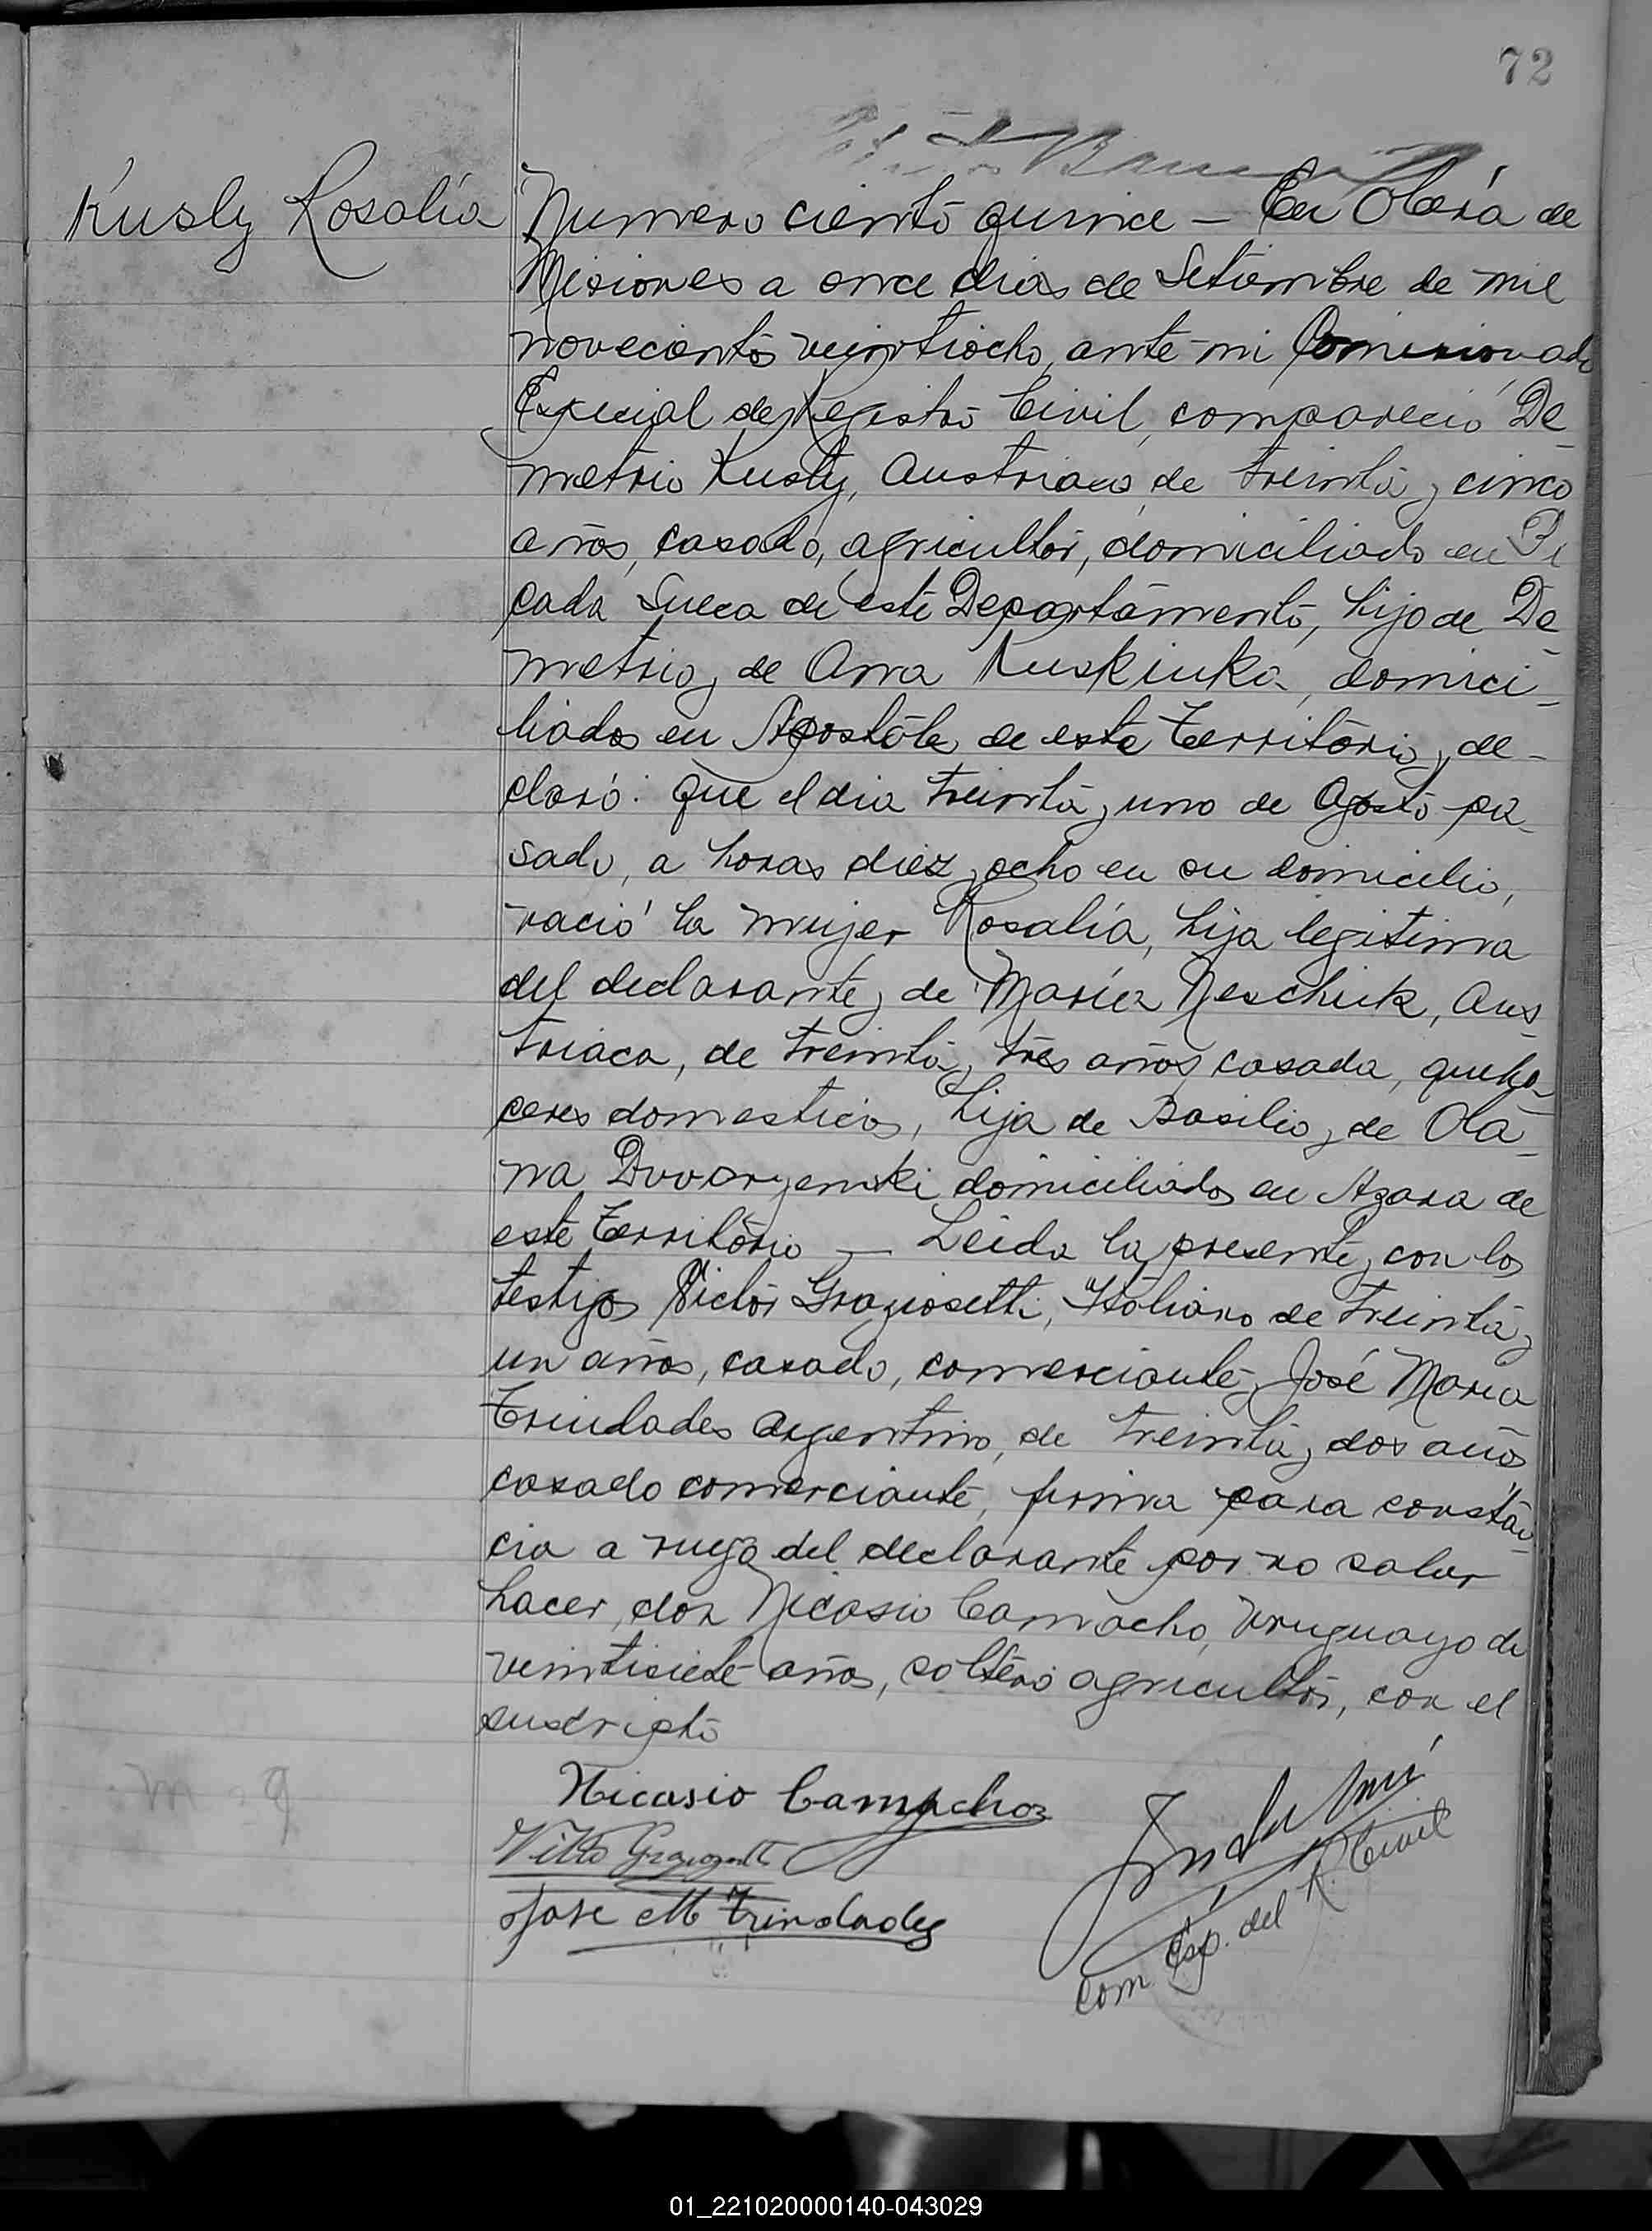 72
Kusly Rosalía
Numero ciento quince – En Oberá de
Misiones a once dias de Setiembre de mil
novecientos veintiocho, ante mi Comisionado
Especial del Registro Civil, compareció De-
metrio Kusly, Austriaco, de treinta y cinco
años, casado, agricultor, domiciliado en Pi
cada Sueca de este Departamento, hijo de De-
metrio y de Ana Kuskiuka, domici-
liados en Apostoles de este Territorio, y de-
claró: Que el dia treinta y uno de Agosto pa-
sado, a horas diez y ocho en su domicilio,
nació la mujer Rosalía, hija legitima
del declarante y de María Neschuk, Aus-
triaca, de treinta y tres años, casada, queha-
ceres domesticos, hija de Basilio y de Ola-
na domiciliados en Azara de
este Territorio – Leida la presente, con los
testigos Victor Graziosetti, Italiano de treinta y
un años, casado, comerciante y José Maria
Trindades Argentino, de treinta y dos años
casado comerciante, firma para constan-
cia a ruego del declarante por no saber
hacer, don Nicasio Camacho, Uruguayo de
veintisiete años, soltero agricultor, con el
suscripto
Nicasio Camacho
Jose M Trindades
Com. Esp. del R. Civil
01_221020000140-043029